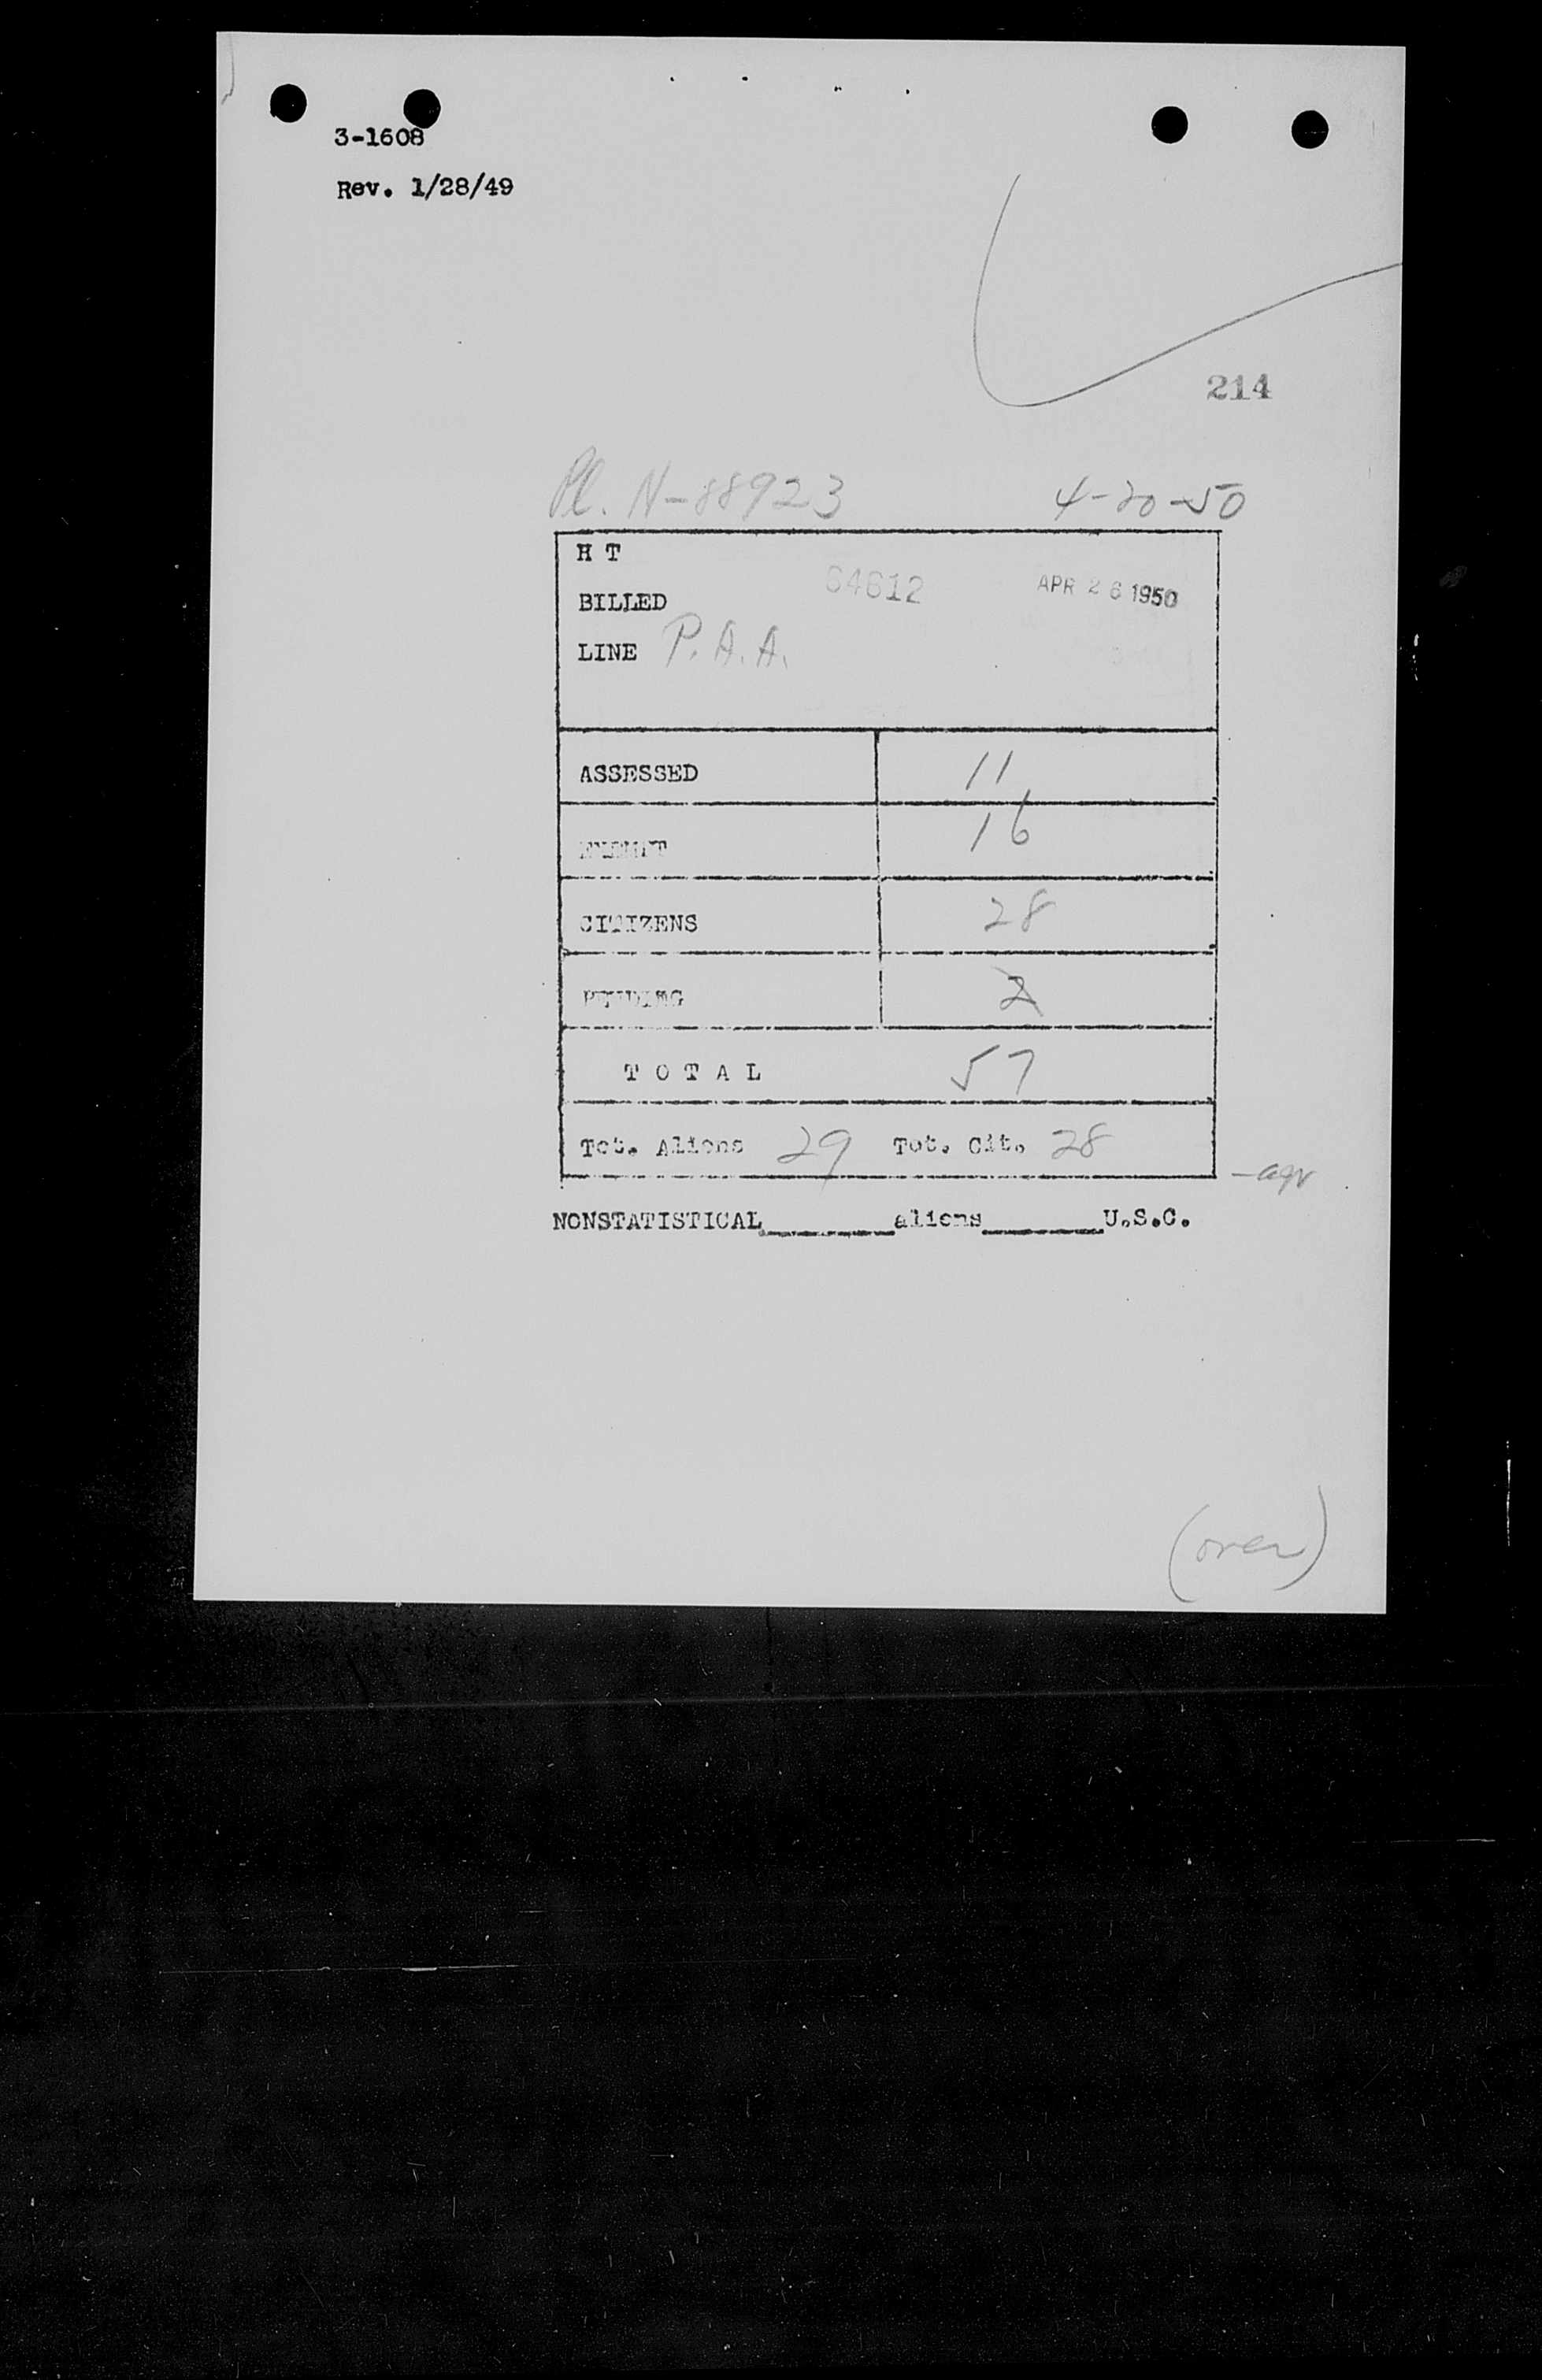 3-1608
Rev. 1/28/49
214
Pl. N-88923 4-20-50
H T
64612 APR 26 1950
BILLED
LINE P.A.A.
ASSESSED 11
EXEMPT 16
CITIZENS 28
PENDING 2
T O T A L 57
Tot. Aliens 29 Tot. Cit. 28
NONSTATISTICAL________aliens________U.S.C.
(over)